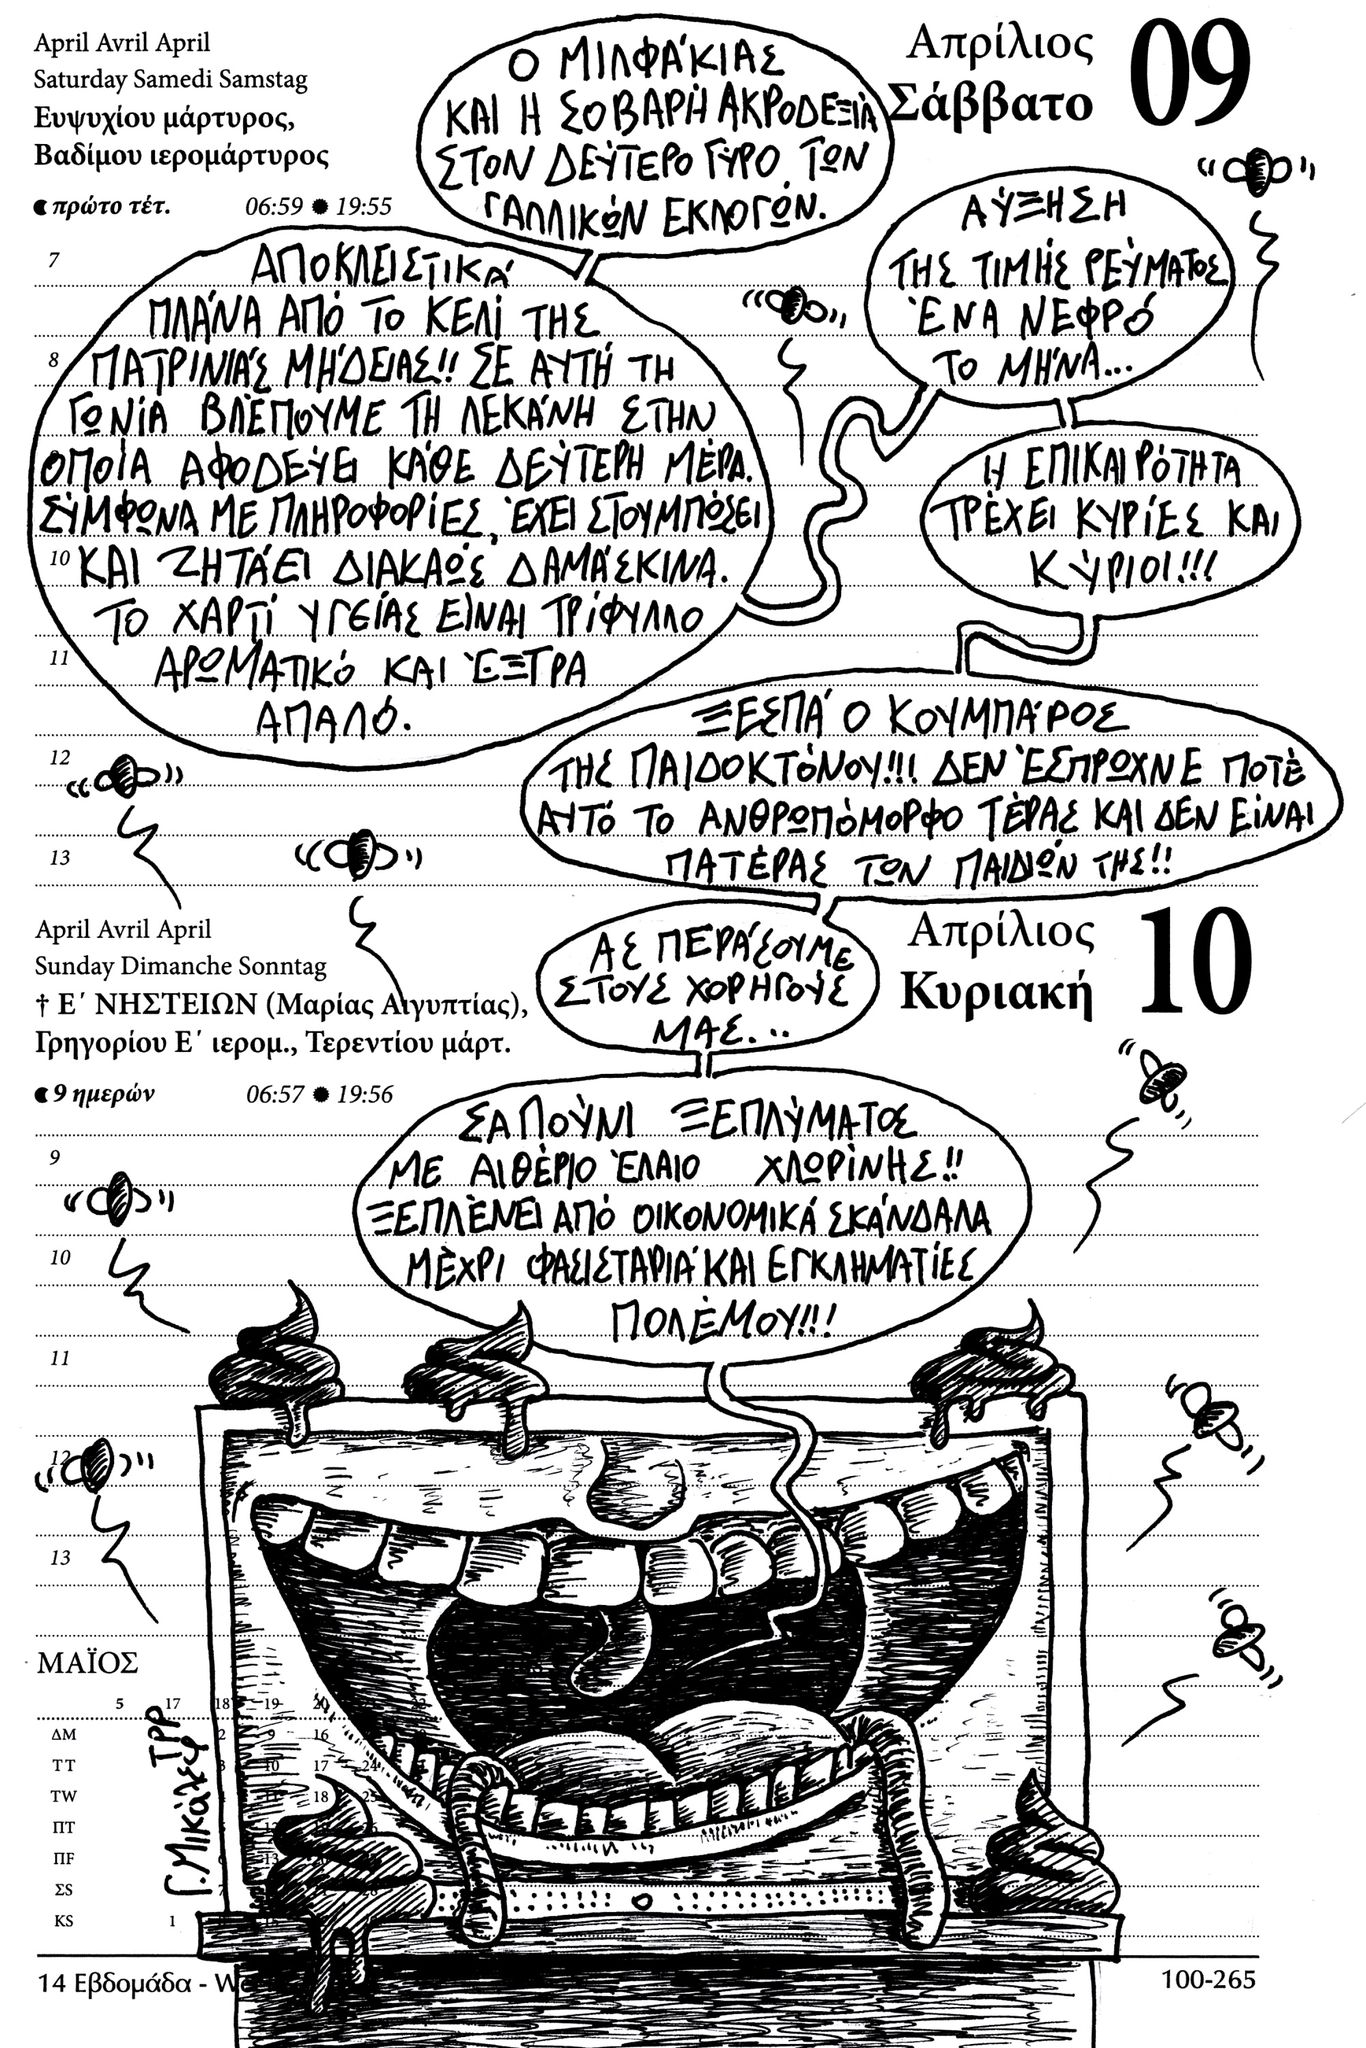 April Avril April
Saturday Samedi Samstag
Ευψυχίου μάρτυρος,
Βαδίμου ιερομάρτυρος
πρώτο τέτ. 06:59 19:55
Απρίλιος
Σάββατο
09
Ο ΜΙΛΦΆΚΙΑΣ
ΚΑΙ Η ΣΟΒΑΡΉ ΑΚΡΟΔΕΞΙΆ
ΣΤΟΝ ΔΕΎΤΕΡΟ ΓΎΡΟ ΤΩΝ
ΓΑΛΛΙΚΏΝ ΕΚΛΟΓΏΝ.
7
8
10
11
12
13
ΑΠΟΚΛΕΙΣΤΙΚΆ
ΠΛΆΝΑ ΑΠΌ ΤΟ ΚΕΛΊ ΤΗΣ
ΠΑΤΡΙΝΙΆΣ ΜΉΔΕΙΑΣ!! ΣΕ ΑΥΤΉ ΤΗ
ΓΩΝΊΑ ΒΛΈΠΟΥΜΕ ΤΗ ΛΕΚΆΝΗ ΣΤΗΝ
ΟΠΟΊΑ ΑΦΟΔΕΎΕΙ ΚΆΘΕ ΔΕΎΤΕΡΗ ΜΈΡΑ.
ΣΎΜΦΩΝΑ ΜΕ ΠΛΗΡΟΦΟΡΊΕΣ, ΈΧΕΙ ΣΤΟΥΜΠΏΣΕΙ
ΚΑΙ ΖΗΤΆΕΙ ΔΙΑΚΑΏΣ ΔΑΜΆΣΚΙΝΑ.
ΤΟ ΧΑΡΤΊ ΥΓΕΊΑΣ ΕΊΝΑΙ ΤΡΊΦΥΛΛΟ
ΑΡΩΜΑΤΙΚΌ ΚΑΙ ΈΞΤΡΑ
ΑΠΑΛΌ.
ΑΎΞΗΣΗ
ΤΗΣ ΤΙΜΉΣ ΡΕΎΜΑΤΟΣ
ΈΝΑ ΝΕΦΡΌ
ΤΟ ΜΉΝΑ...
Η ΕΠΙΚΑΙΡΌΤΗΤΑ
ΤΡΈΧΕΙ ΚΥΡΊΕΣ ΚΑΙ
ΚΎΡΙΟΙ!!!
ΞΕΣΠΆ Ο ΚΟΥΜΠΆΡΟΣ
ΤΗΣ ΠΑΙΔΟΚΤΌΝΟΥ!!! ΔΕΝ ΈΣΠΡΩΧΝΕ ΠΟΤΈ
ΑΥΤΌ ΤΟ ΑΝΘΡΩΠΌΜΟΡΦΟ ΤΈΡΑΣ ΚΑΙ ΔΕΝ ΕΊΝΑΙ
ΠΑΤΈΡΑΣ ΤΩΝ ΠΑΙΔΙΏΝ ΤΗΣ!!
April Avril April
Sunday Dimanche Sonntag
† Ε΄ ΝΗΣΤΕΙΩΝ (Μαρίας Αιγυπτίας),
Γρηγορίου Ε΄ ιερομ., Τερεντίου μάρτ.
9 ημερών 06:57 19:56
Απρίλιος
Κυριακή
10
ΑΣ ΠΕΡΆΣΟΥΜΕ
ΣΤΟΥΣ ΧΟΡΗΓΟΎΣ
ΜΑΣ...
ΣΑΠΟΎΝΙ ΞΕΠΛΎΜΑΤΟΣ
ΜΕ ΑΙΘΈΡΙΟ ΈΛΑΙΟ ΧΛΩΡΊΝΗΣ!!
ΞΕΠΛΈΝΕΙ ΑΠΌ ΟΙΚΟΝΟΜΙΚΆ ΣΚΆΝΔΑΛΑ
ΜΈΧΡΙ ΦΑΣΙΣΤΑΡΙΆ ΚΑΙ ΕΓΚΛΗΜΑΤΊΕΣ
ΠΟΛΈΜΟΥ!!!
9
10
11
12
13
ΜΑΪΟΣ
5 17 18 19 20
ΔΜ 2 9 16
ΤΤ 3 10 17 24
ΤW 11 18 25
ΠΤ
ΠF 13
ΣS 7
ΚS 1
Γ. Μικάλεφ
ΤΡΡ
14 Εβδομάδα - We
100-265